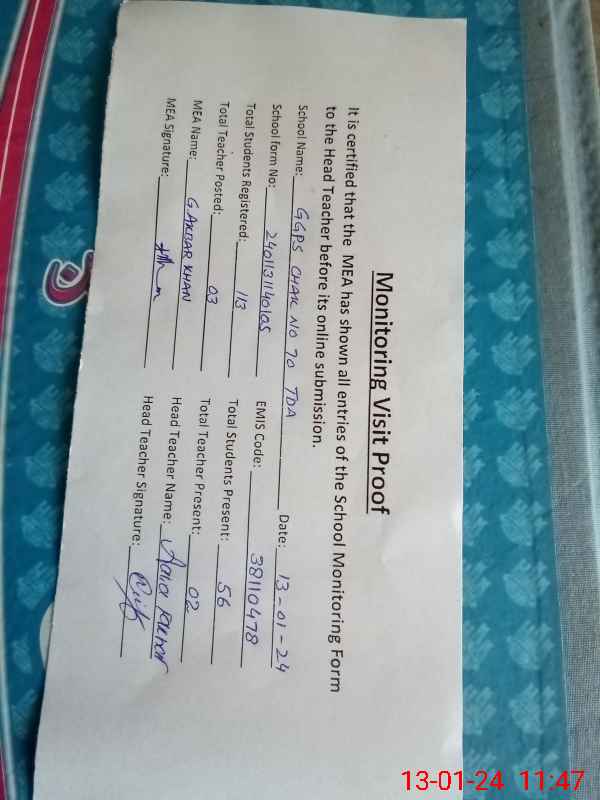 Monitoring Visit Proof
It is certified that the MEA has shown all entries of the School Monitoring Form
to the Head Teacher before its online submission.
School Name: GGPS CHAK NO 70 TDA Date: 13-01-24
School form No: 2401131140105 EMIS Code: 38110478
Total Students Registered: 113 Total Students Present: 56
Total Teacher Posted: 03 Total Teacher Present: 02
MEA Name: G.AKBAR KHAN Head Teacher Name:
MEA Signature: Head Teacher Signature:
13-01-24 11:47